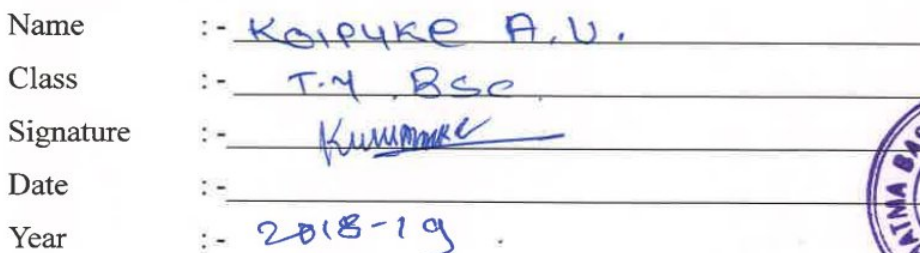 Name :- Koipyke A.U.
Class :- T.Y. BSc.
Signature :-
Date :-
Year :- 2018-19
ATMA BAS